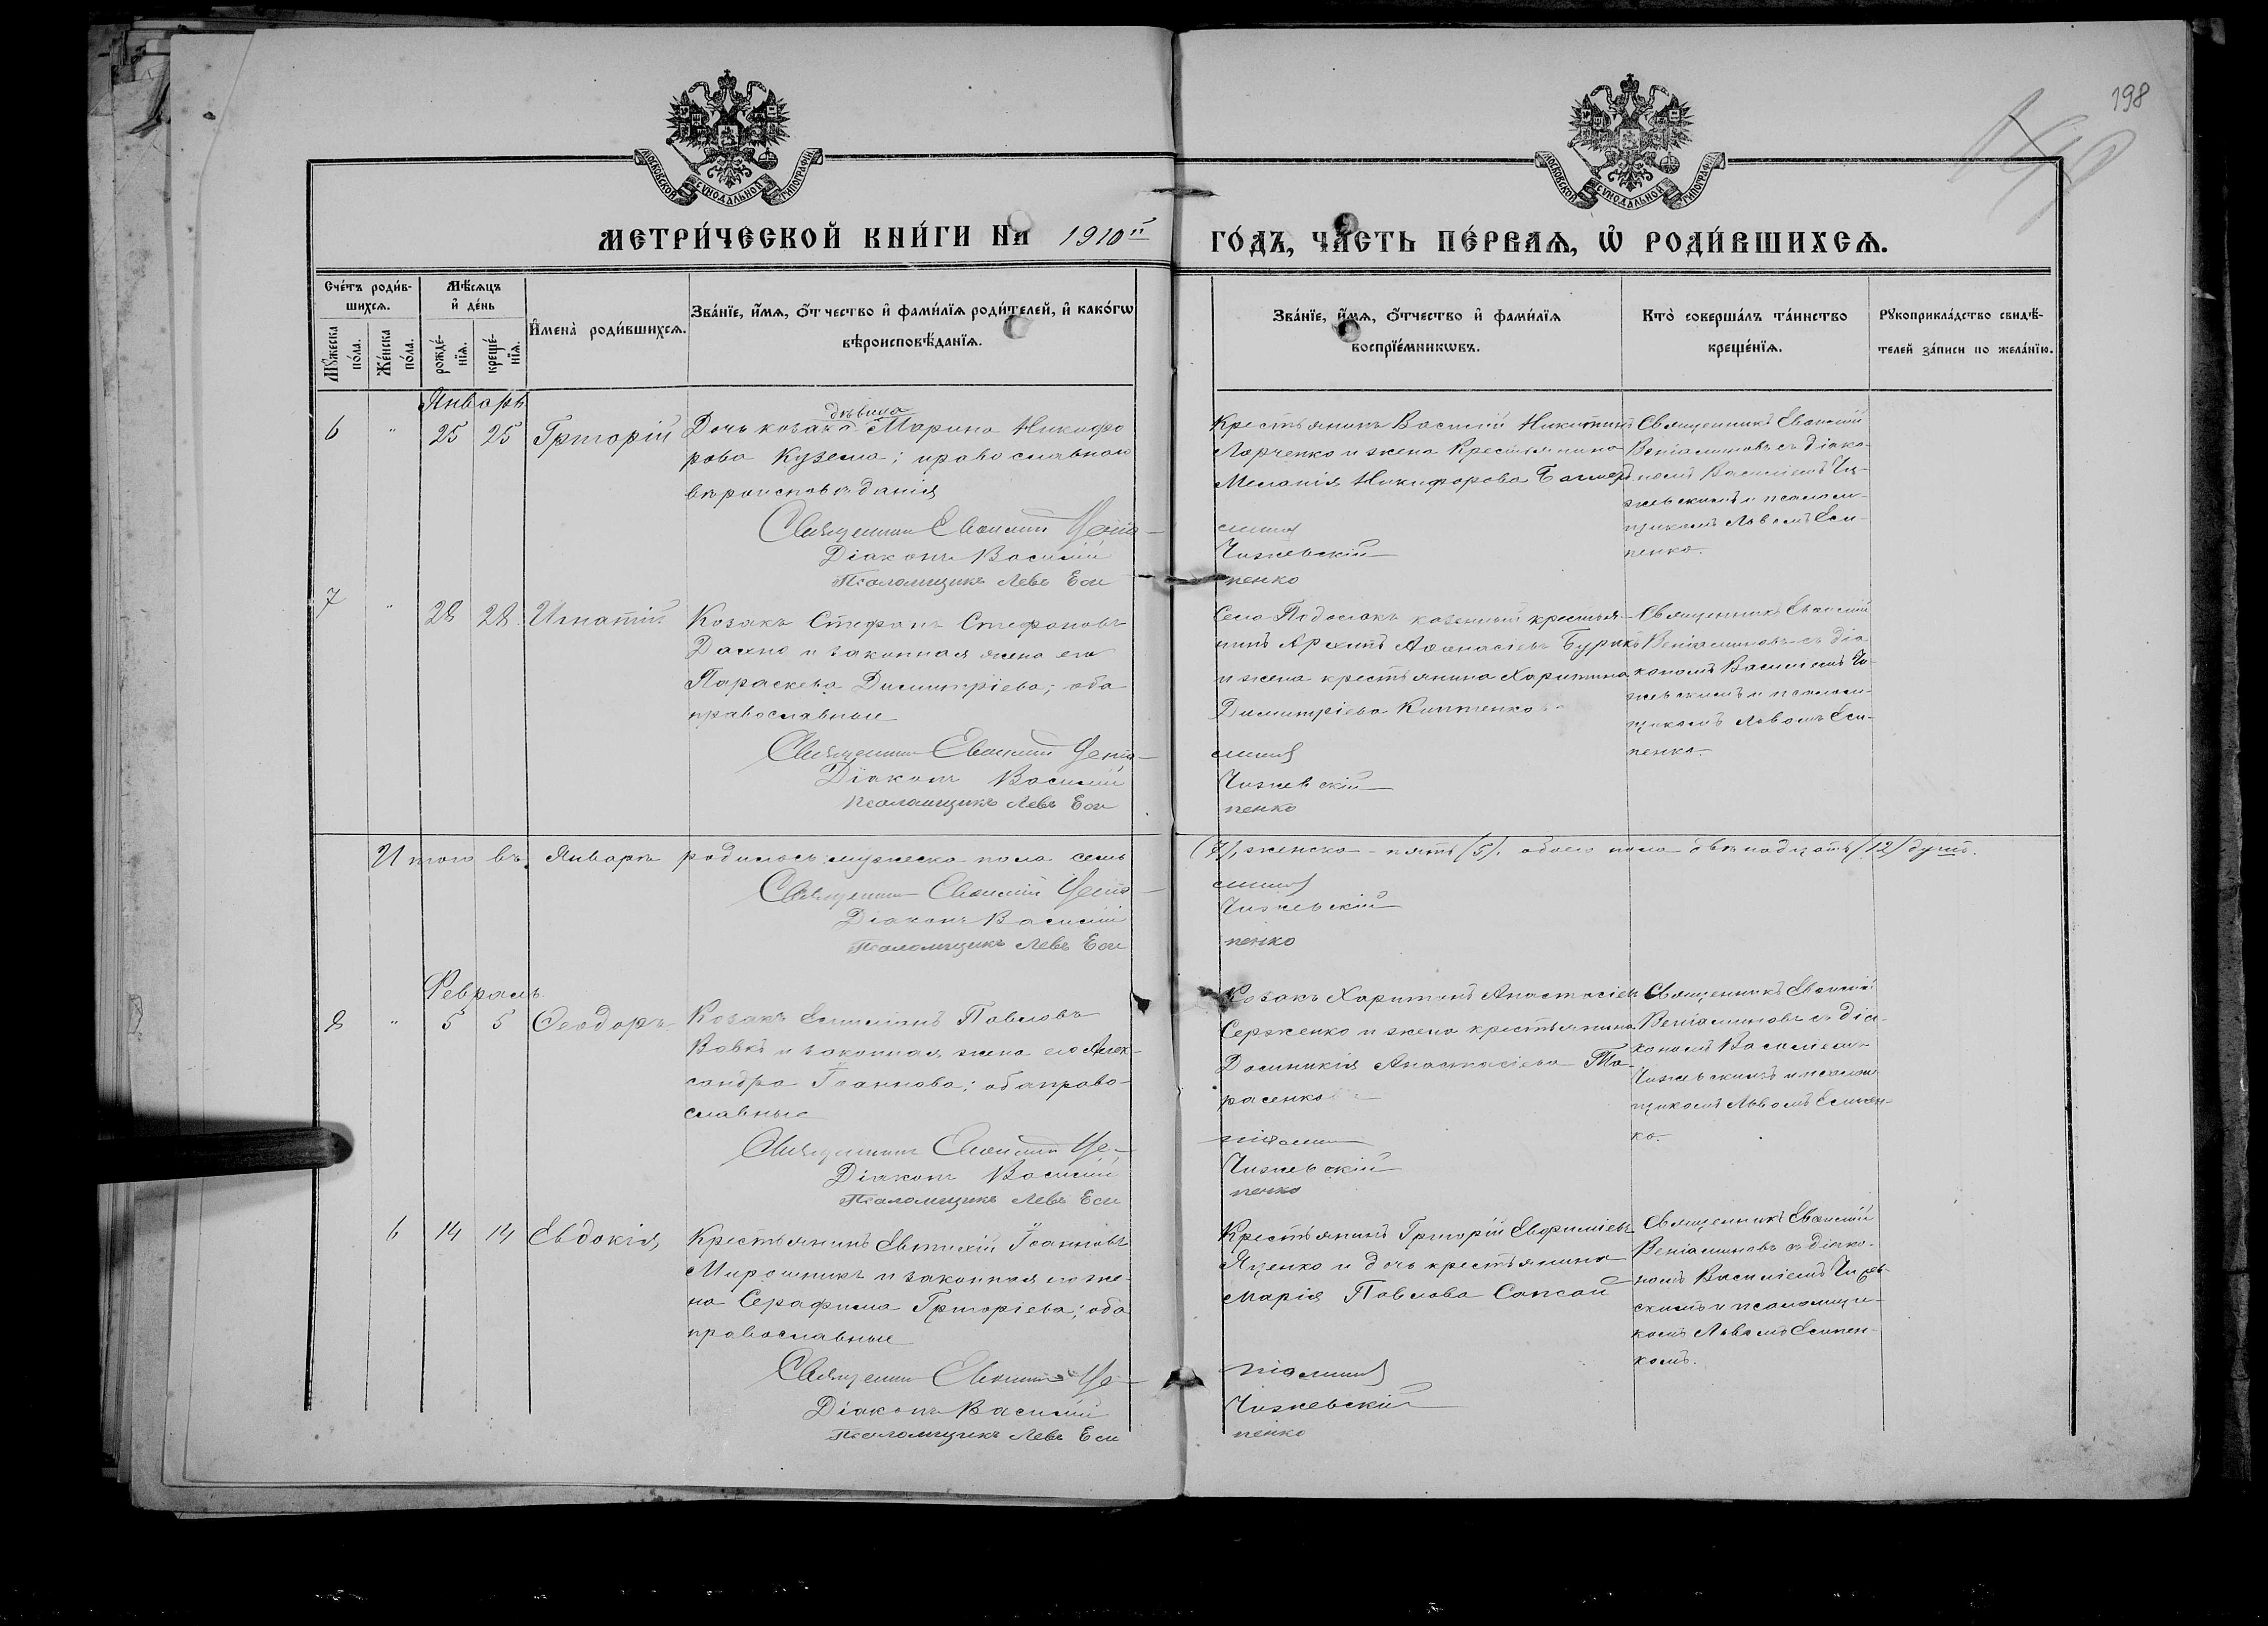 198
МОСКОВСКОЙ СѴНОДАЛЬНОЙ ТИПОГРАФІИ
МОСКОВСКОЙ СѴНОДАЛЬНОЙ ТИПОГРАФІИ
МЕТРИ́ЧЕСКОЙ КНИ́ГИ НА 1910й ГО́ДЪ, ЧА́СТЬ ПЕ́РВАѦ, Ѡ҆ РОДИ́ВШИХСѦ.
Сче́тъ роди́в-
шихсѧ.
Мꙋ́жеска по́ла.
Же́нска по́ла.
Мѣ́сѧцъ
и҆ де́нь
рожде́-
нїѧ.
креще́-
нїѧ.
И҆мена̀ роди́вшихсѧ.
Зва́нїе, и҆́мѧ, ѻ҆́тчество и҆ фами́лїѧ роди́телей, и҆ како́гѡ
вѣроисповѣ́данїѧ.
Зва́нїе, и҆́мѧ, ѻ҆́тчество и҆ фами́лїѧ
воспрїе́мникѡвъ.
Кто̀ соверша́лъ та́инство
креще́нїѧ.
Рꙋкоприкла́дство свидѣ́-
телей за́писи по жела́нїю.
Январь
6 " 25 25 Григорій
дѣвица
Дочь козака Марина Никифо
рова Кузема; православнаго
вѣроисповѣданія
Священникъ Евѳимій Венiа-
Діаконъ Василій
Псаломщикъ Левъ Еси
Крестьянинъ Василій Никитинъ
и жена крестьянина
Меланія Никифорова
миновъ
Чижевскій
пенко
Священникъ Евѳимій
Веніаминовъ съ діако-
номъ Василіемъ Чи-
жевскимъ и псалом-
щикомъ Львомъ Еси-
пенко.
7 " 28 28 Игнатій
Козакъ Стефанъ Стефановъ
Дахно и законная жена его
Параскева Димитріева; оба
православные
Священникъ Евѳимій Веніа-
Діаконъ Василій
Псаломщикъ Левъ Еси
Села казенный крестья-
нинъ Архипъ Аѳанасіевъ
и жена крестьянина Харитина
Димитріева
миновъ
Чижевскій
пенко
Священникъ Евѳимій
Веніаминовъ съ діа
кономъ Василіемъ Чи-
жевскимъ и псалом-
щикомъ Львомъ Еси-
пенко.
Итого въ Январѣ родилось мужеска пола семь (7), женска - пять (5), обоего пола двѣнадцать (12) душъ.
Священникъ Евѳимій Веніа-
Діаконъ Василій
Псаломщикъ Левъ Еси
миновъ
Чижевскій
пенко
Февраль
8 " 5 5 Ѳеодоръ
Козакъ Емиліанъ Павловъ
Вовкъ и законная жена его Алек-
сандра Іоаннова; оба право-
славные
Священникъ Евѳимій Ве-
Діаконъ Василій
Псаломщикъ Левъ Еси
Козакъ Харитонъ Анастасіевъ
Серженко и жена крестьянина
Домникія Анастасіева Та-
расенкова
ніаминовъ
Чижевскій
пенко
Священникъ Евѳимій
Веніаминовъ съ діа-
кономъ Василіемъ
Чижевскимъ и псалом
щикомъ Львомъ Есипен-
ко.
6 14 14 Евдокія
Крестьянинъ Евтихій Іоанновъ
Мирошникъ и законная его же-
на Серафима Григоріева; оба
православные
Священникъ Евѳимій Ве-
Діаконъ Василій
Псаломщикъ Левъ Еси
Крестьянинъ Григорій Евфиміевъ
Яценко и дочь крестьянина
Марія Павлова Сапсай
ніаминовъ
Чижевскій
пенко
Священникъ Евѳимій
Веніаминовъ съ діако-
номъ Василіемъ Чижев-
скимъ и псаломщи-
комъ Львомъ Есипен-
комъ.